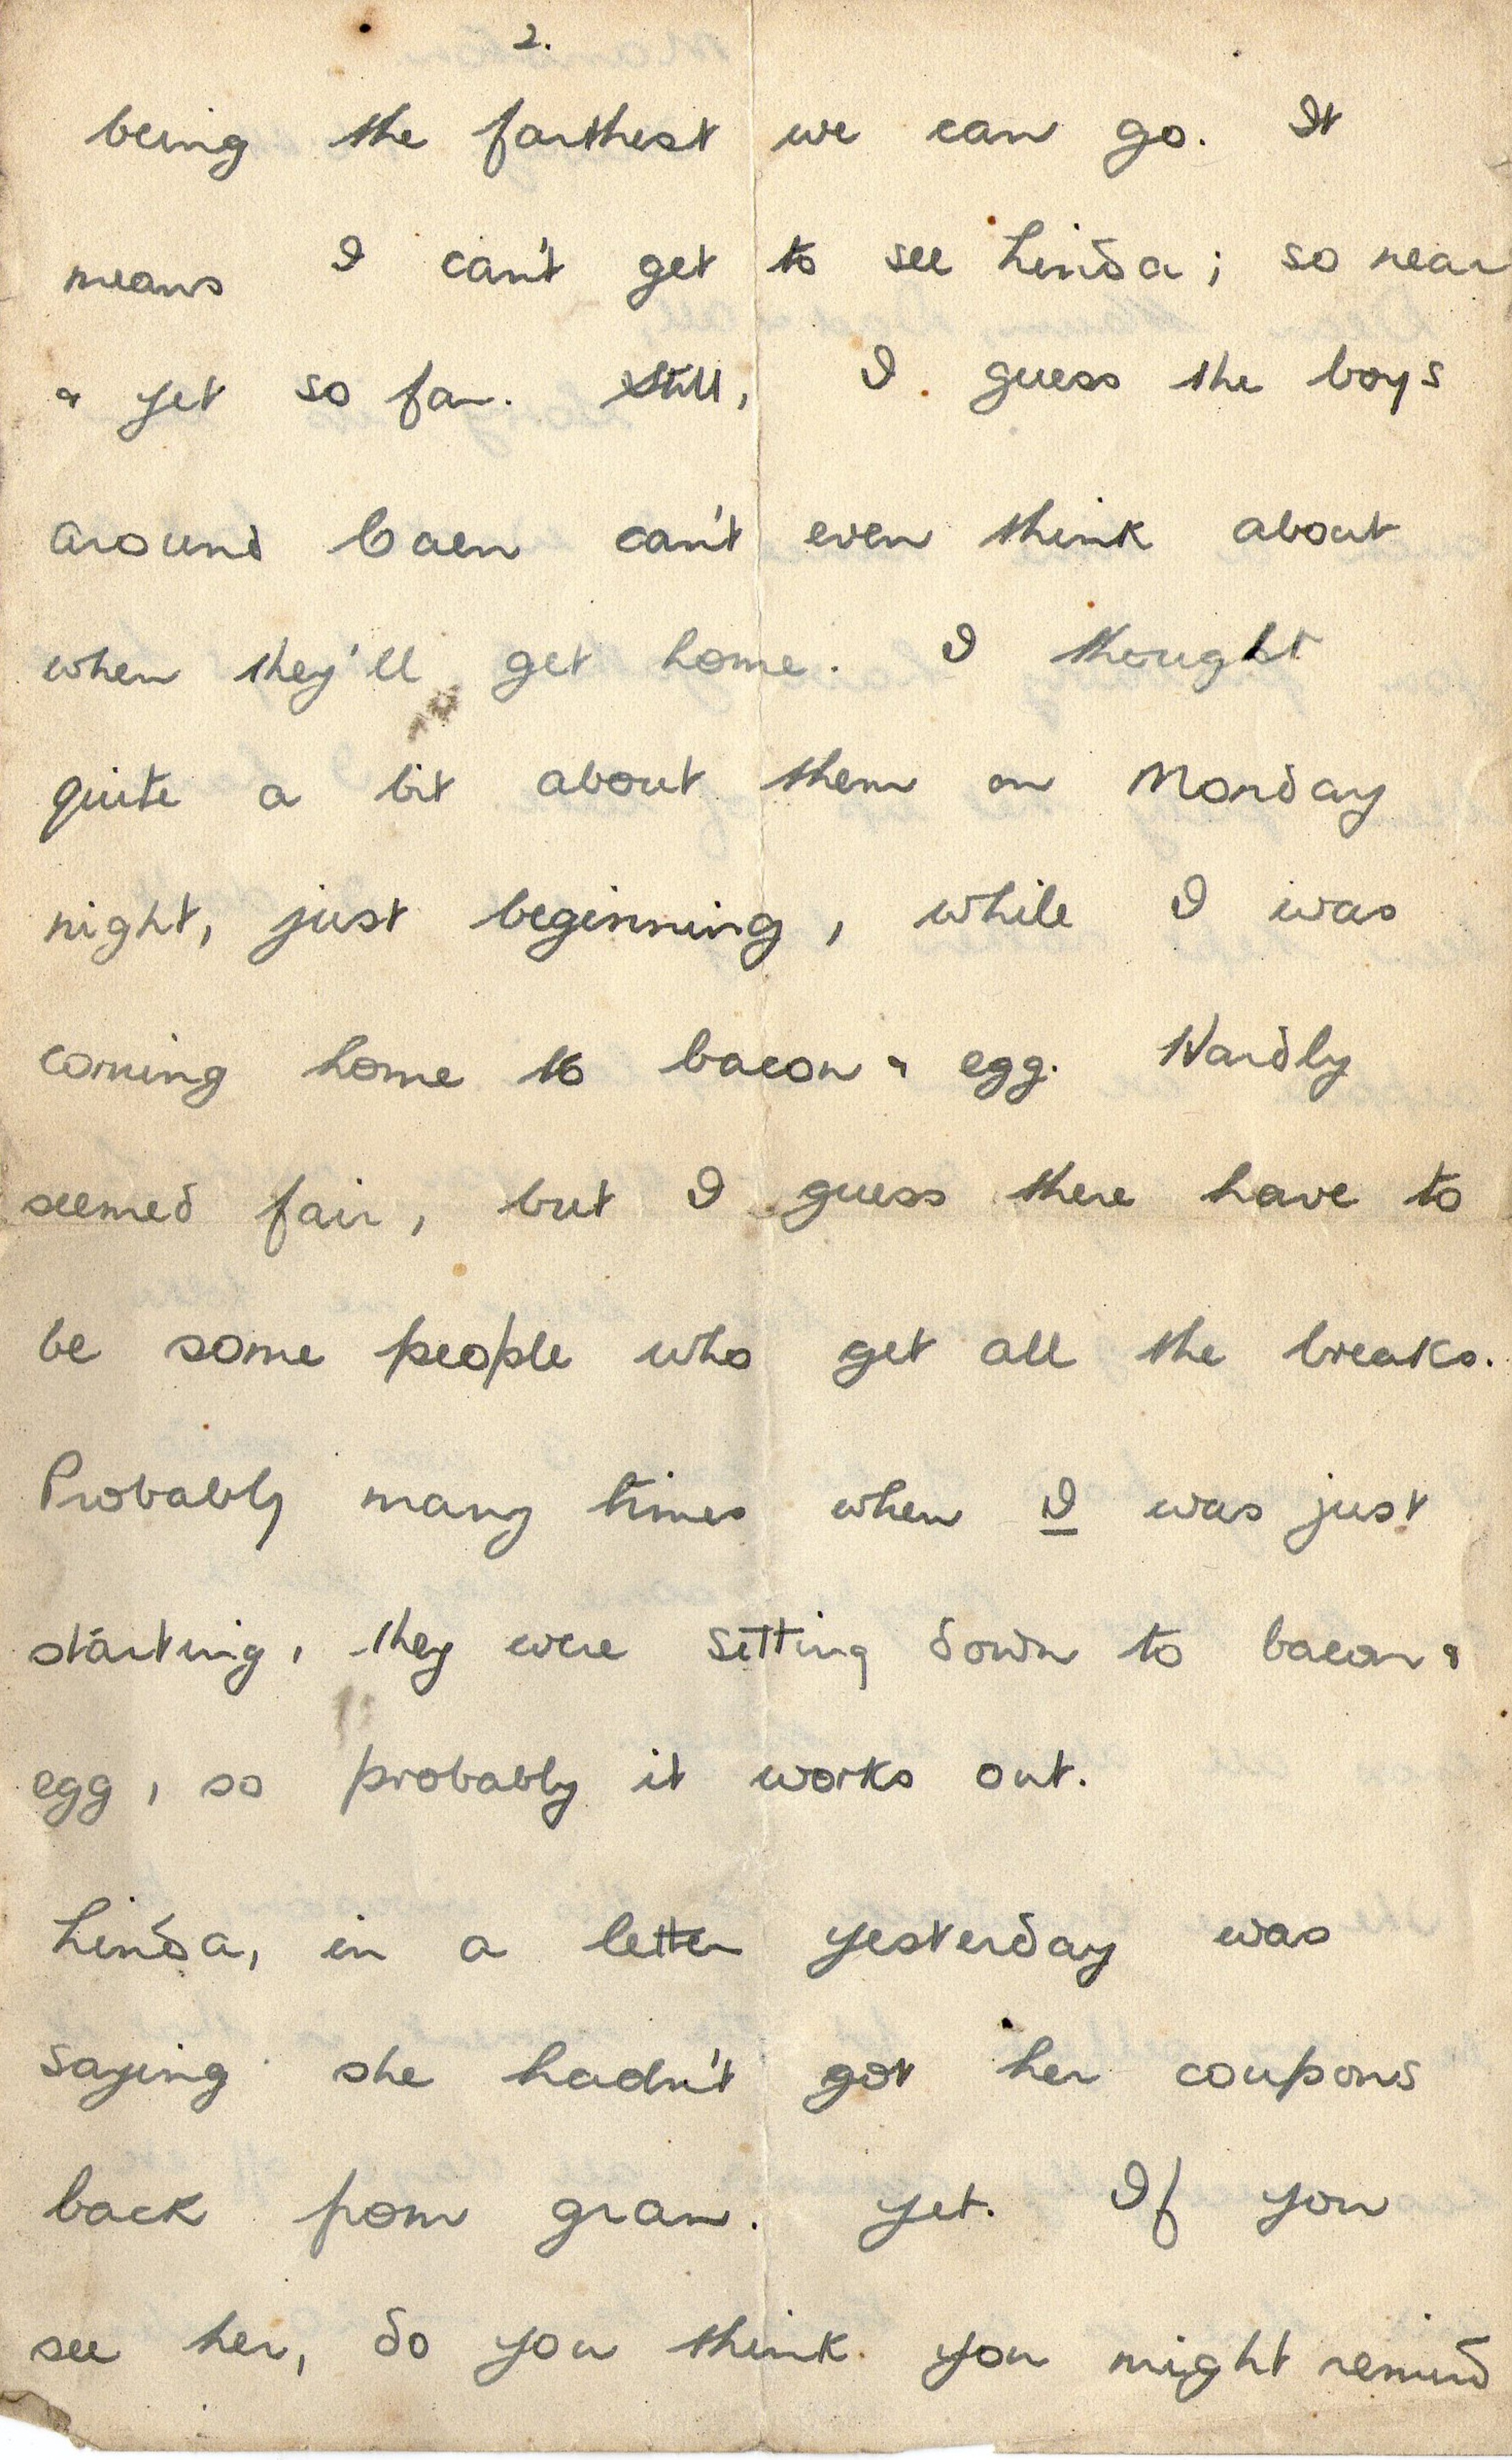 2.
being the farthest we can go. It
means I can't get to see Linda; so near
& yet so far. Still, I guess the boys
around Caen can't even think about
when they'll get home. I thought
quite a bit about them on Monday
night, just beginning, while I was
coming home to bacon & egg. Hardly
seemed fair, but I guess there have to
be some people who get all the breaks.
Probably many times when I was just
starting, they were sitting down to bacon &
egg, so probably it works out.
Linda, in a letter yesterday was
saying she hadn't got her coupons
back from gran. yet. If you
see her, do you think you might remind